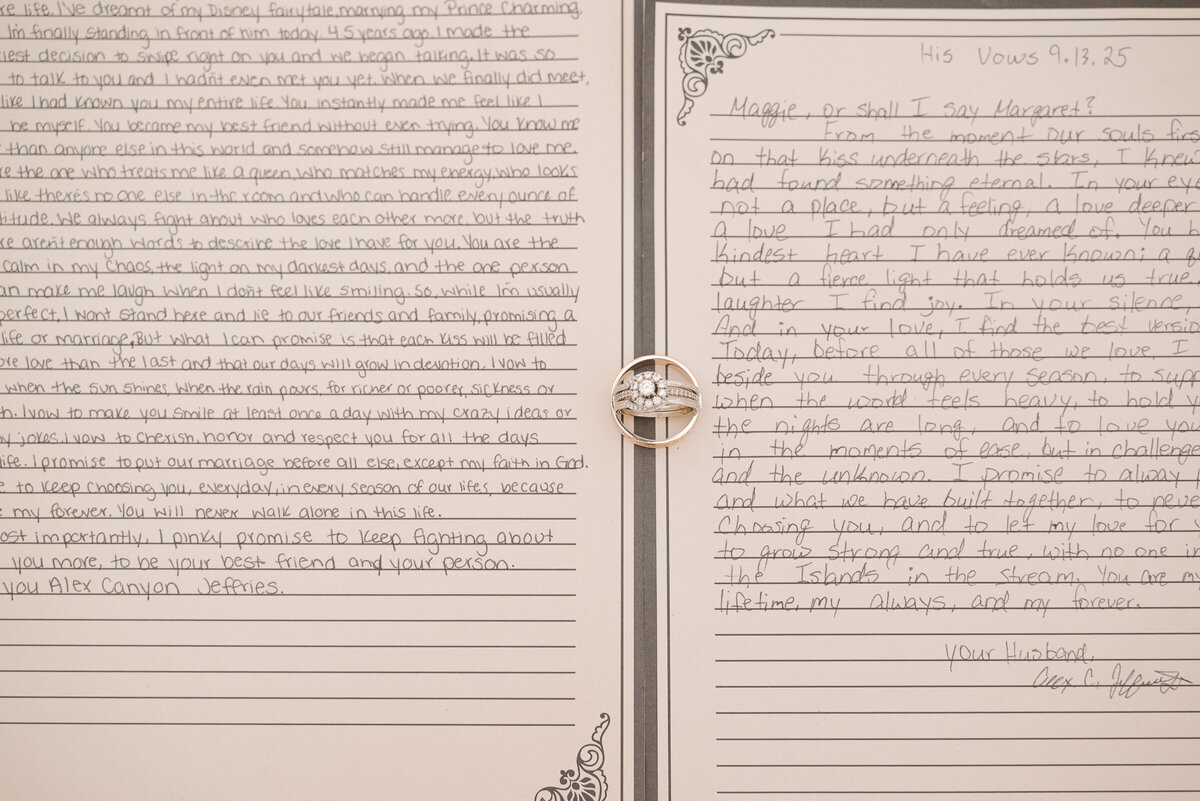 re life. I've dreamt of my Disney fairytale, marrying my Prince Charming,
I'm finally standing in front of him today. 4.5 years ago, I made the
iest decision to swipe right on you and we began talking. It was so
to talk to you and I hadn't even met you yet. When we finally did meet,
like I had known you my entire life. You instantly made me feel like I
be myself. You became my best friend without even trying. You know me
than anyone else in this world and somehow still manage to love me.
re the one who treats me like a queen, who matches my energy, who looks
like there's no one else in the room and who can handle every ounce of
titude. We always fight about who loves each other more, but the truth
re aren't enough words to describe the love I have for you. You are the
calm in my chaos, the light on my darkest days, and the one person
an make me laugh when I don't feel like smiling. So, while I'm usually
perfect, I wont stand here and lie to our friends and family, promising a
life or marriage, But what I can promise is that each kiss will be filled
ore love than the last and that our days will grow in devotion. I vow to
when the sun shines, when the rain pours, for richer or poorer, sickness or
h. I vow to make you smile at least once a day with my crazy ideas or
y jokes. I vow to cherish, honor and respect you for all the days
life. I promise to put our marriage before all else, except my faith in God.
e to keep choosing you, everyday, in every season of our lifes, because
my forever. You will never walk alone in this life.
ost importantly, I pinky promise to keep fighting about
you more, to be your best friend and your person.
you Alex Canyon Jeffries.
His Vows 9.13.25
Maggie, or shall I say Margaret?
From the moment our souls firs
on that kiss underneath the stars, I knew
had found something eternal. In your eye
not a place, but a feeling, a love deeper
a love I had only dreamed of. You h
kindest heart I have ever known; a q
but a fierce light that holds us true.
laughter I find joy. In your silence,
And in your love, I find the best versio
Today, before all of those we love, I
beside you through every season, to supp
when the world feels heavy, to hold y
the nights are long, and to love you
in the moments of ease, but in challenge
and the unknown. I promise to alway
and what we have built together, to neve
choosing you, and to let my love for
to grow strong and true, with no one in
the Islands in the stream. You are my
lifetime, my always, and my forever.
Your Husband,
Alex C. Jeffries